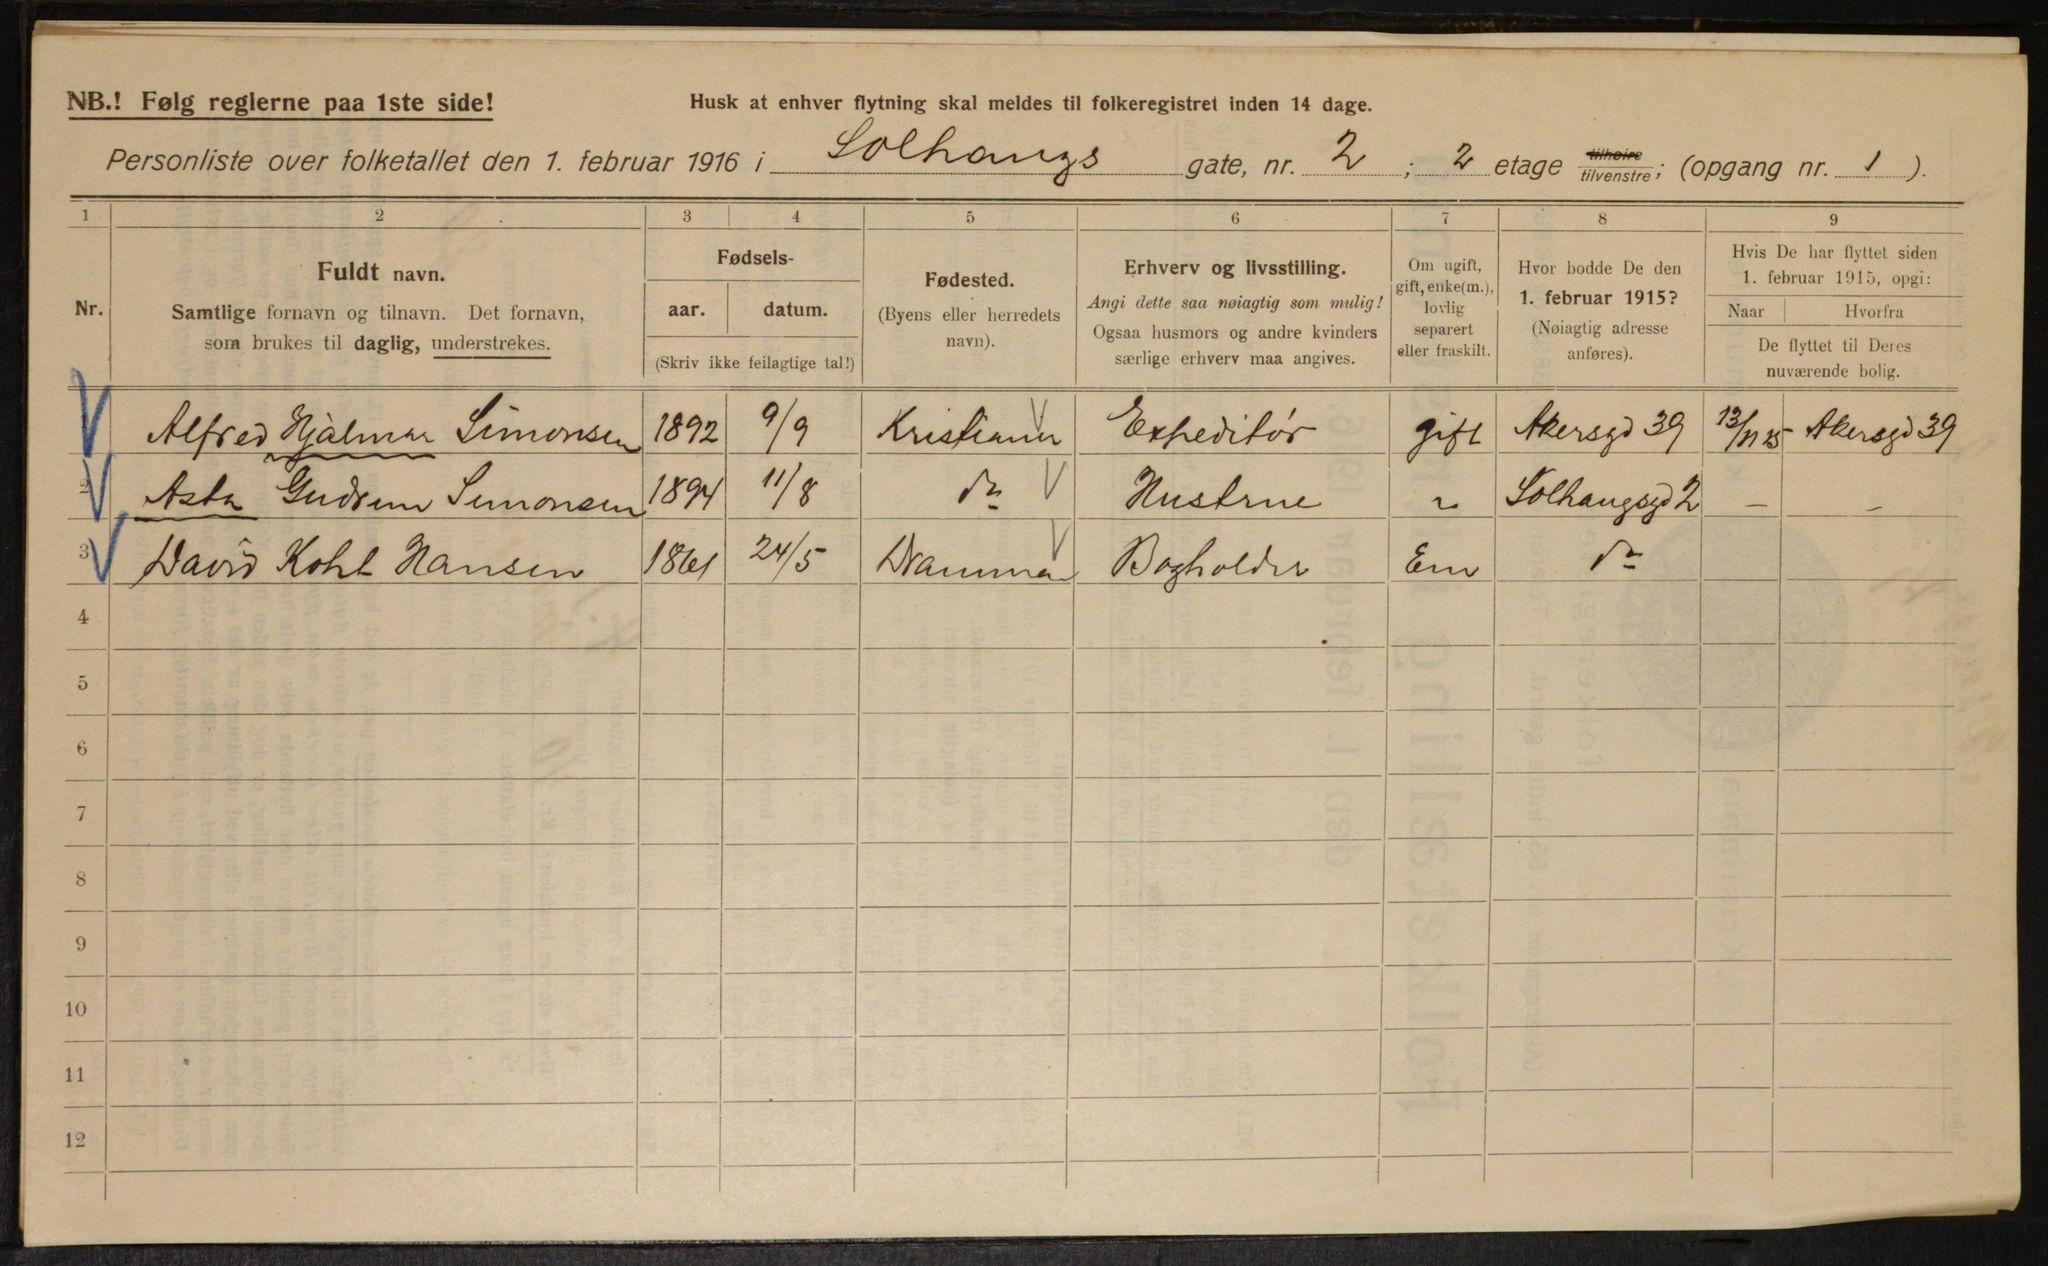 NB.! Følg reglerne paa 1ste side!
Husk at enhver flytning skal meldes til folkeregistret inden 14 dage.
Personliste over folketallet den 1. februar 1916 i Solhaugs gate, nr. 2 ; 2 etage tilhøire tilvenstre; (opgang nr. 1 ).
1 2 3 4 5 6 7 8 9
Nr.
Fuldt navn.
Samtlige fornavn og tilnavn. Det fornavn,
som brukes til daglig, understrekes.
Fødsels-
aar. datum.
(Skriv ikke feilagtige tal!)
Fødested.
(Byens eller herredets
navn).
Erhverv og livsstilling.
Angi dette saa nøiagtig som mulig!
Ogsaa husmors og andre kvinders
særlige erhverv maa angives.
Om ugift,
gift, enke(m.),
lovlig
separert
eller fraskilt.
Hvor bodde De den
1. februar 1915?
(Nøiagtig adresse
anføres).
Hvis De har flyttet siden
1. februar 1915, opgi:
Naar Hvorfra
De flyttet til Deres
nuværende bolig.
Alfred Hjalmar Simonsen 1892 9/9 Kristiania Expeditør gift Akersgd 39 13/11 15 Akersgd 39
2 Asta Gudrun Simonsen 1894 11/8 do Hustrue " Solhaugsgd 2 – –
3 David Kohl Hansen 1861 24/5 Drammen Bogholder Em do
4
5
6
7
8
9
10
11
12